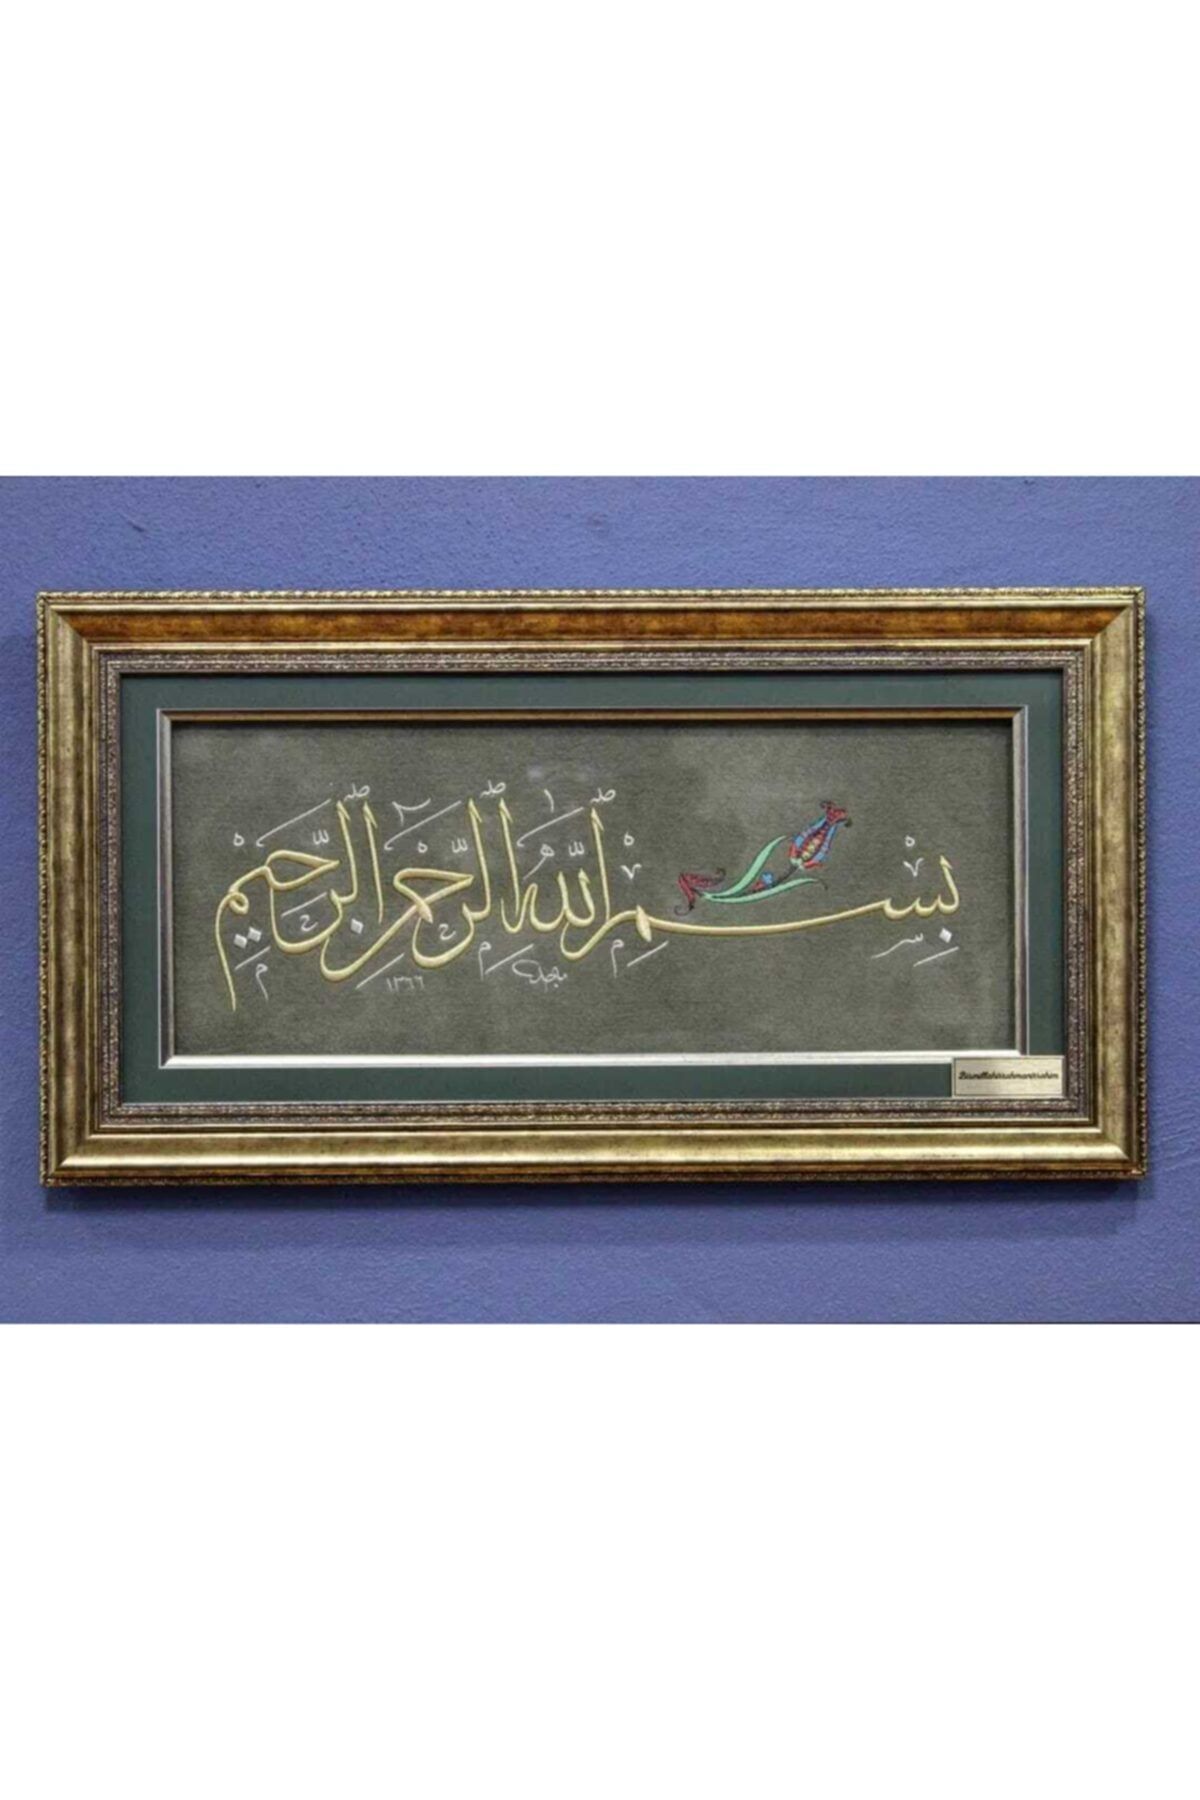 بِسْمِ اللّٰهِ الرَّحْمٰنِ الرَّحِيمِ
ماجد
١٣٦٦
Bismillahirrahmanirrahim